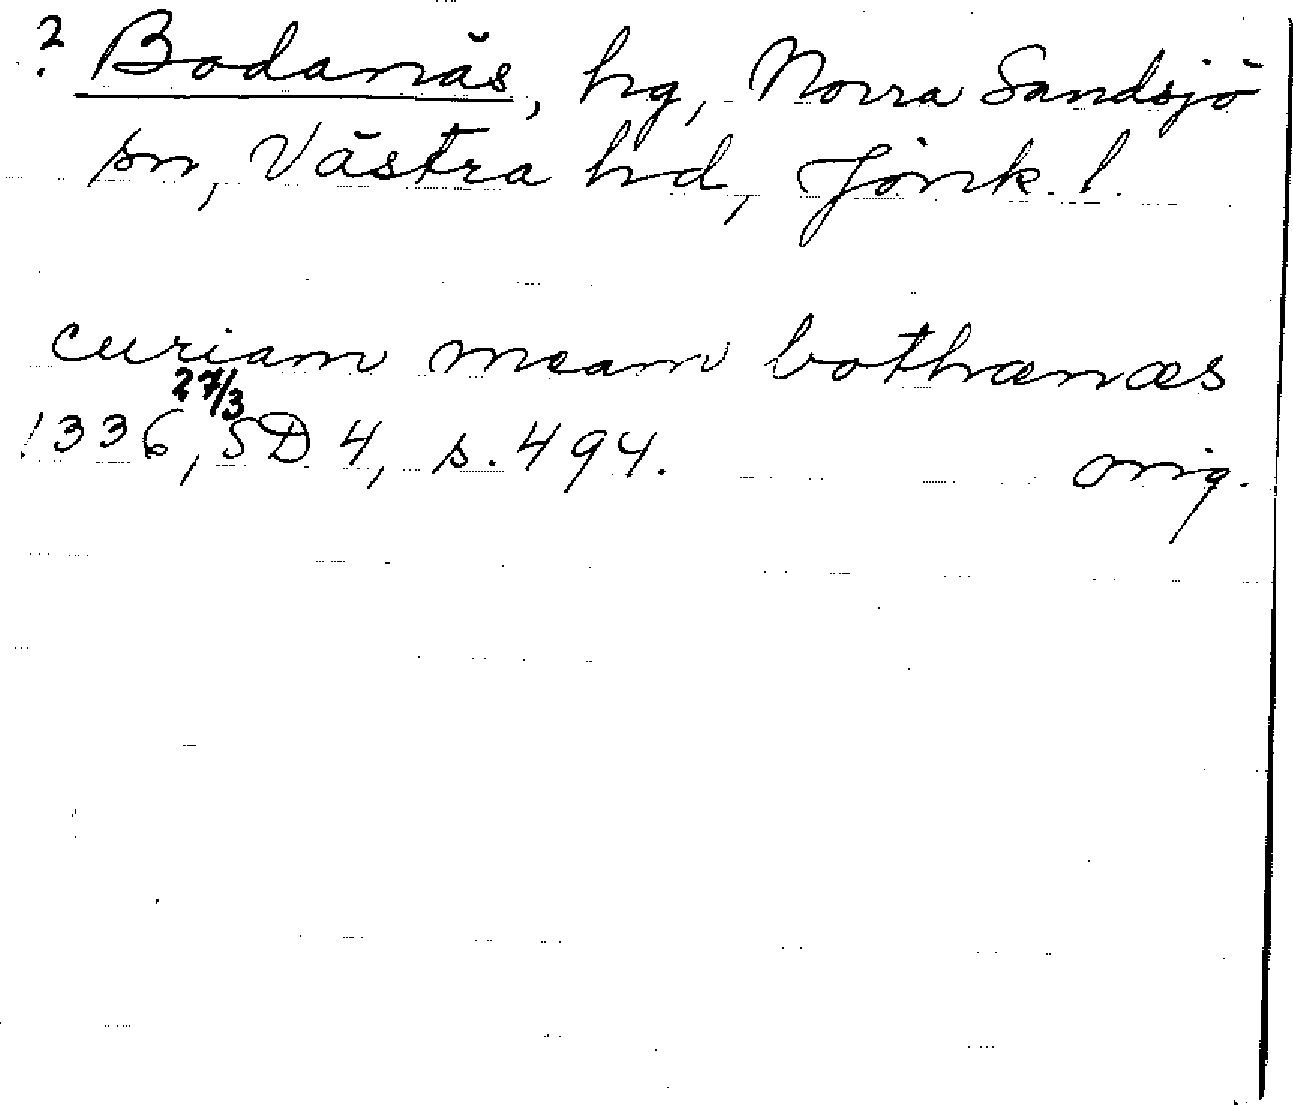 ? Bodanäs, hg, Norra Sandsjö
sn, Västra hd, Jönk. l.
curiam meam bothænæs
1336 27/3, SD 4, s. 494. orig.